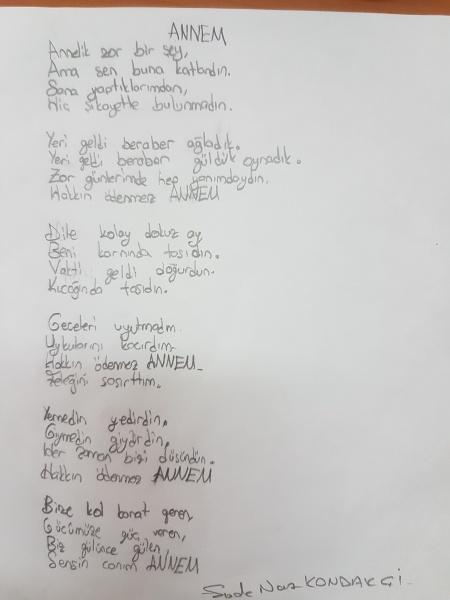 ANNEM
Annelik zor bir şey,
Ama sen buna katlandın.
Sana yaptıklarımdan,
Hiç şikayette bulunmadın.
Yeri geldi beraber ağladık.
Yeri geldi beraber güldük oynadık.
Zor günlerimde hep yanımdaydın.
Hakkın ödenmez ANNEM
Dile kolay dokuz ay
Beni karnında taşıdın.
Vakti geldi doğurdun.
Kucağında taşıdın.
Geceleri uyutmadım
Uykularını kaçırdım
Hakkın ödenmez ANNEM
şaşırttım.
Yemedin yedirdin,
Giymedin giydirdin,
Her zaman bizi düşündün.
Hakkın ödenmez ANNEM
Bize kol kanat geren,
Gücümüze güç veren,
Biz gülünce gülen,
Sensin canım ANNEM
Sude Naz KONDAKÇI